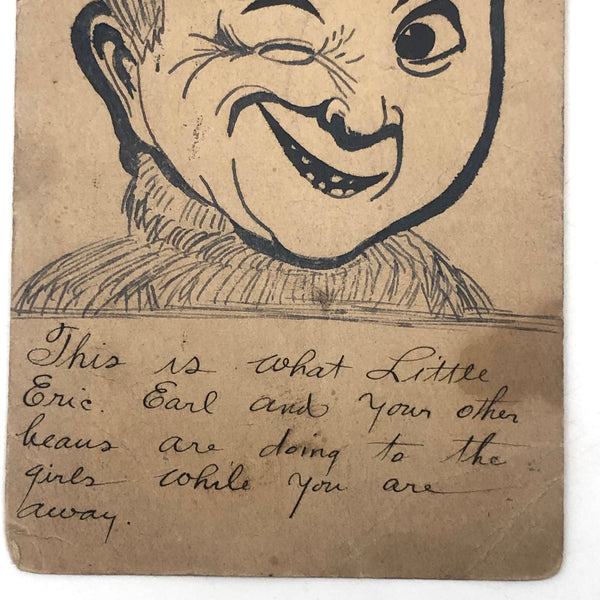 This is what Little
Eric. Earl and your other
beaus are doing to the
girls while you are
away.